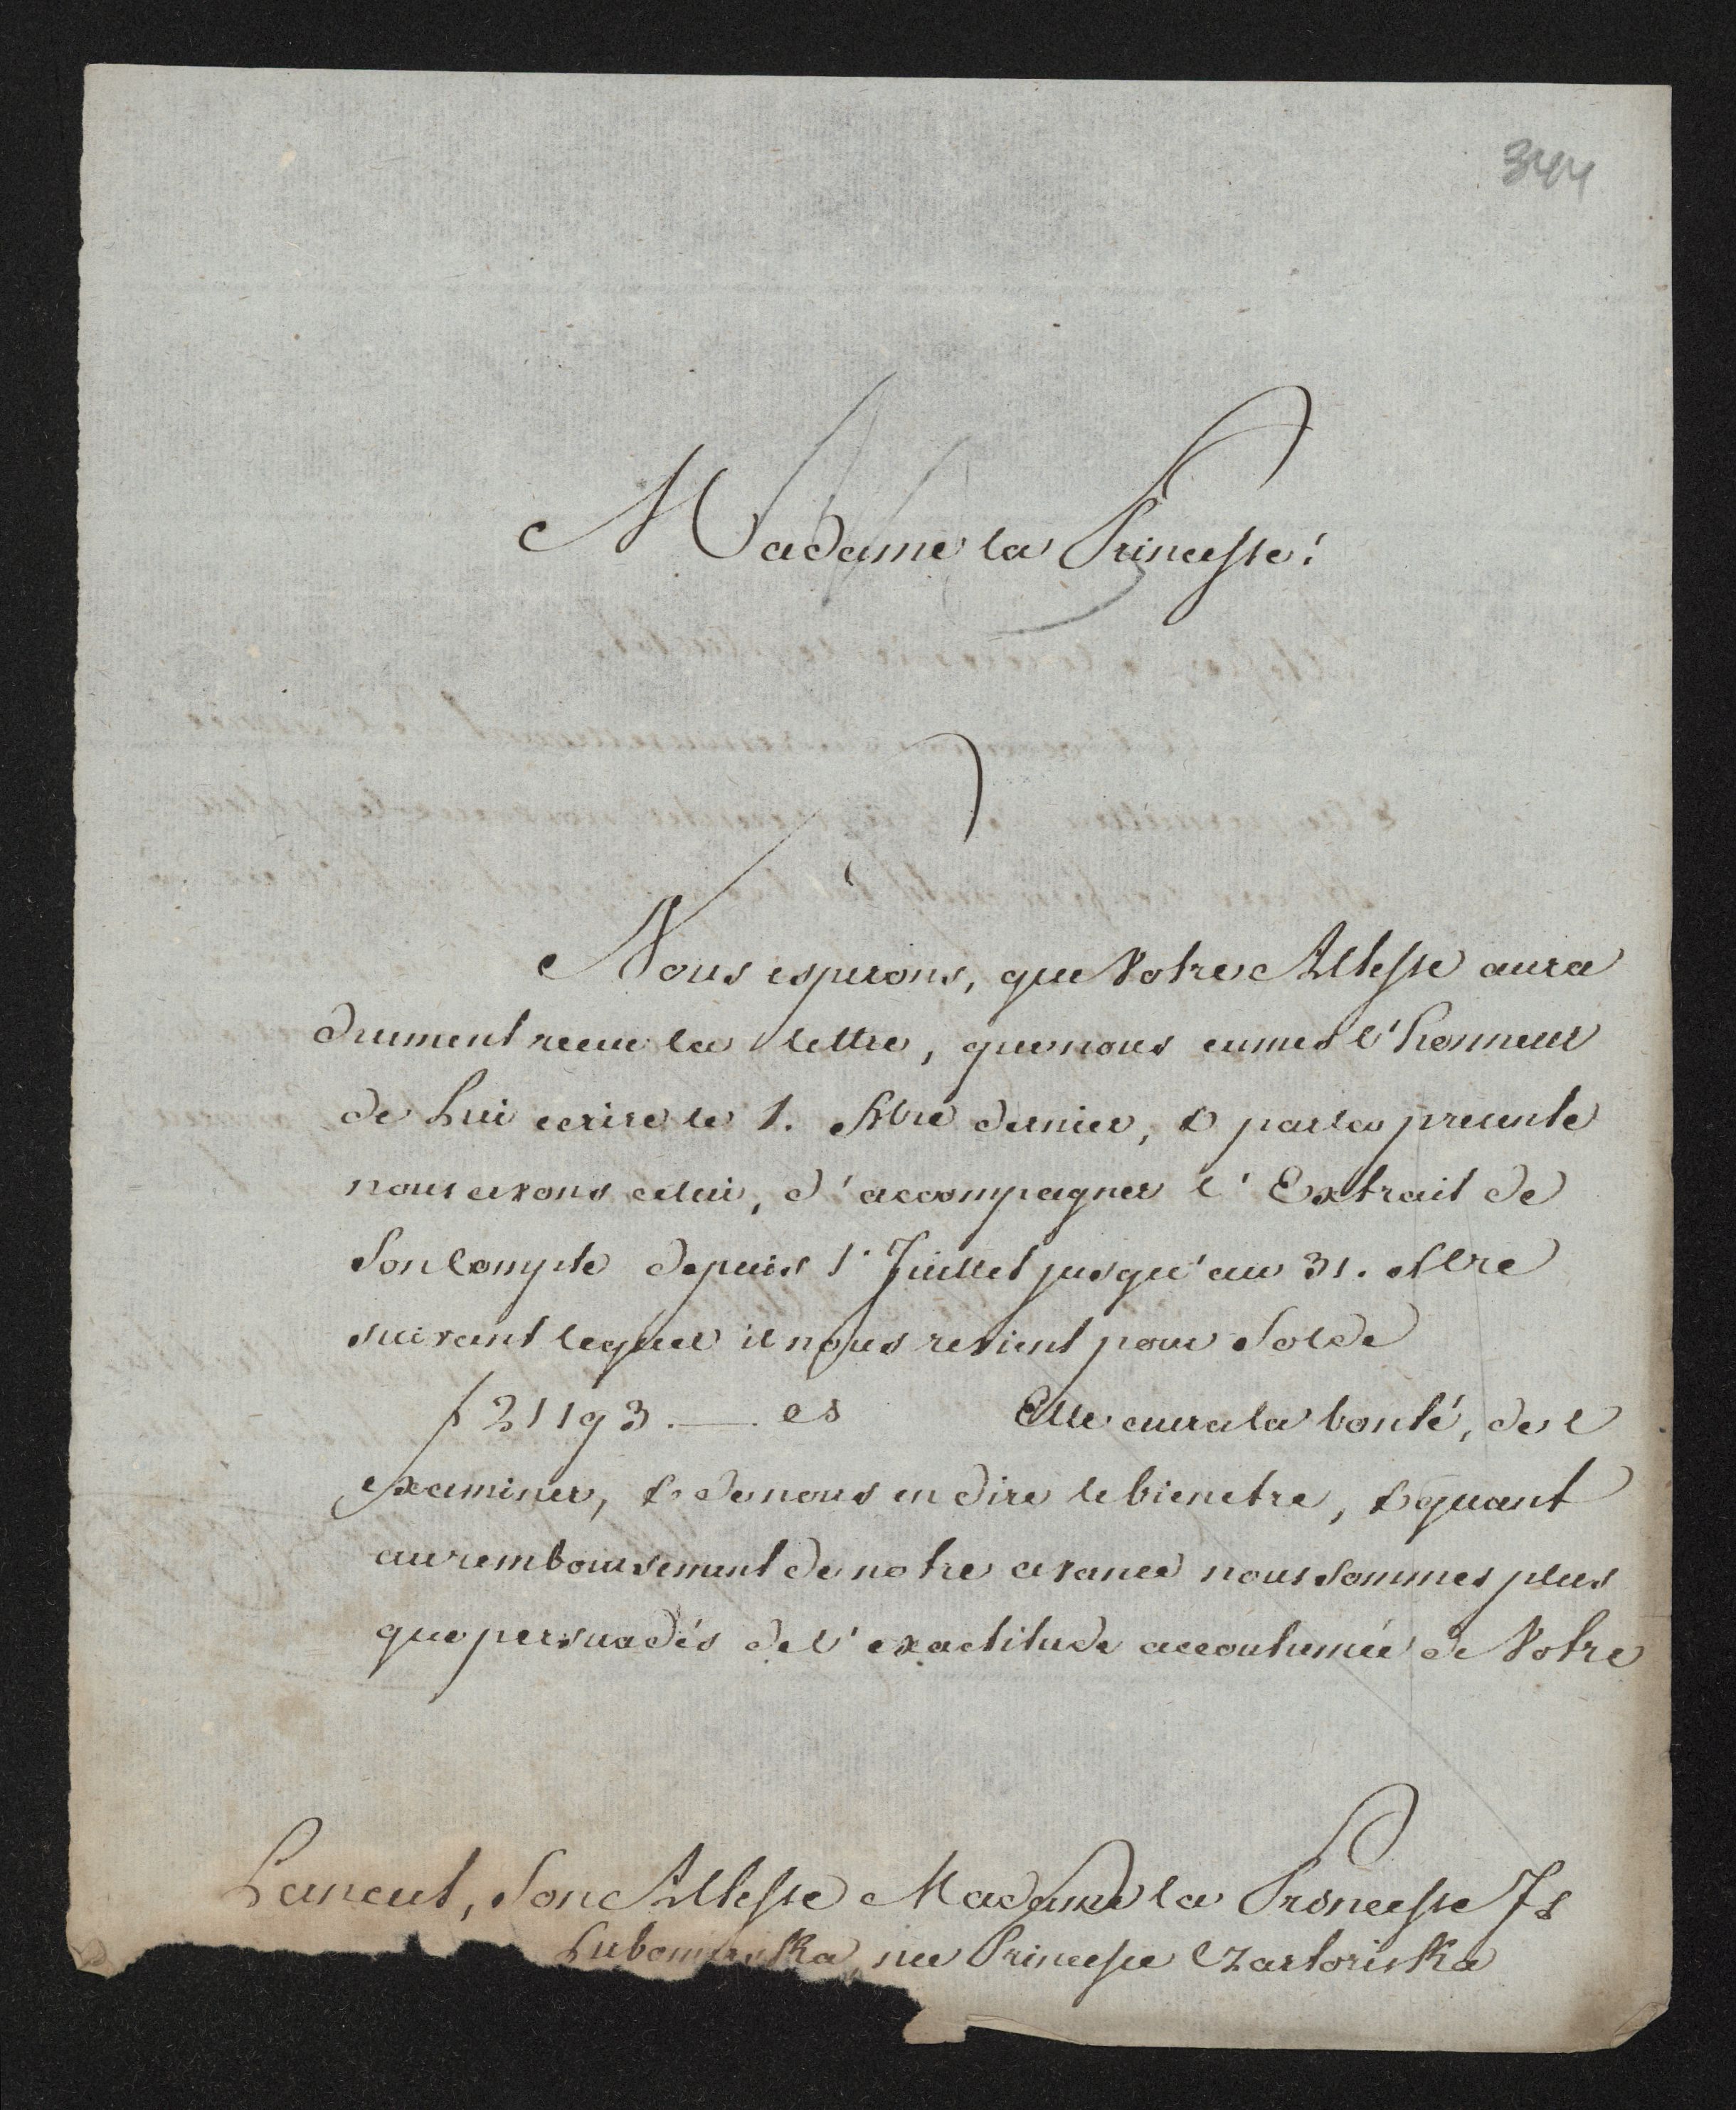 344
Madame la Princesse!
Nous esperons, que Votre Altesse aura
duement recue la lettre, que nous eumes l'honneur
de Lui ecrire le 1. Xbre dernier, & par la presente
nous avons celui, d'accompagner l'Extrait de
Son Compte depuis 1' Juillet jusqu'au 31. Xbre
suivant lequel il nous revient pour Solde
f 21193.—. es Elle aura la bonté, de l
examiner, & de nous en dire le bienetre, & quant
au remboursement de notre avance nous sommes plus
que persuadés de l'exactitude accoutumée de Votre
Lancut, Son Altesse Madame la Princesse Is
Lubomirska, nee Princesse Czartoriska